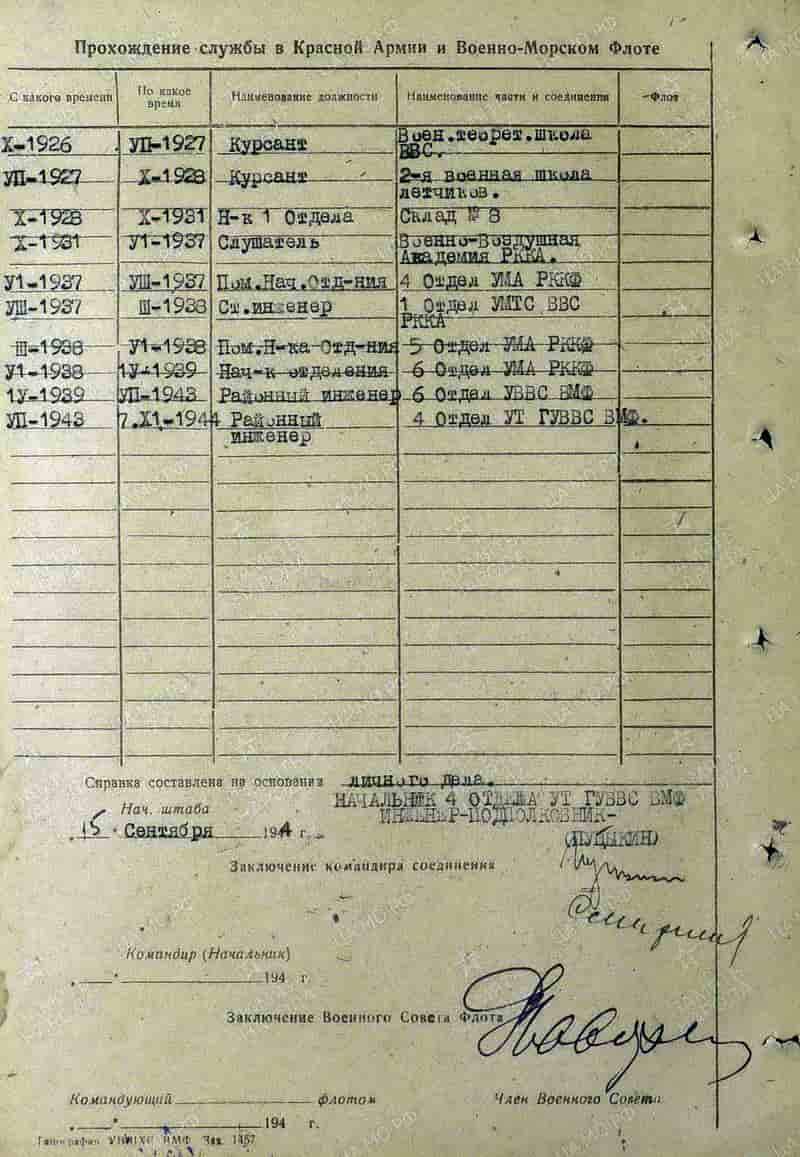 Прохождение службы в Красной Армии и Военно-Морском Флоте
С какого времени По какое время Наименование должности Наименование части и соединения Флот
X-1926 УП-1927 Курсант Воен.теорет.школа
ВВС.
УП-1927 X-1928 Курсант 2-я военная школа
летчиков.
X-1928 X-1931 Н-к 1 Отдела Склад № 8
X-1931 У1-1937 Слушатель Военно-Воздушная
Академия РККА.
У1-1937 УШ-1937 Пом.Нач.Отд-ния 4 Отдел УМА РККФ
УШ-1937 Ш-1938 Ст.инженер 1 Отдел УМТС ВВС
РККА
Ш-1938 У1-1938 Пом.Н-ка Отд-ния 5 Отдел УМА РККФ
У1-1938 1У-1939 Нач-к отделения 6 Отдел УМА РККФ
1У-1939 УП-1943 Районный инженер 6 Отдел УВВС ВМФ
УП-1943 7.X1.-1944 Районный 4 Отдел УТ ГУВВС ВМФ.
инженер
Справка составлена на основании личного дела.
НАЧАЛЬНИК 4 ОТДЕЛА УТ ГУВВС ВМФ
Нач. штаба ИНЖЕНЕР-ПОДПОЛКОВНИК-
„15“ Сентября 1944 г.
Заключение командира соединения
Командир (Начальник)
„ “ 194 г.
Заключение Военного Совета Флота
Командующий флотом Член Военного Совета
„ “ 194 г.
Типография ВМФ Зак.